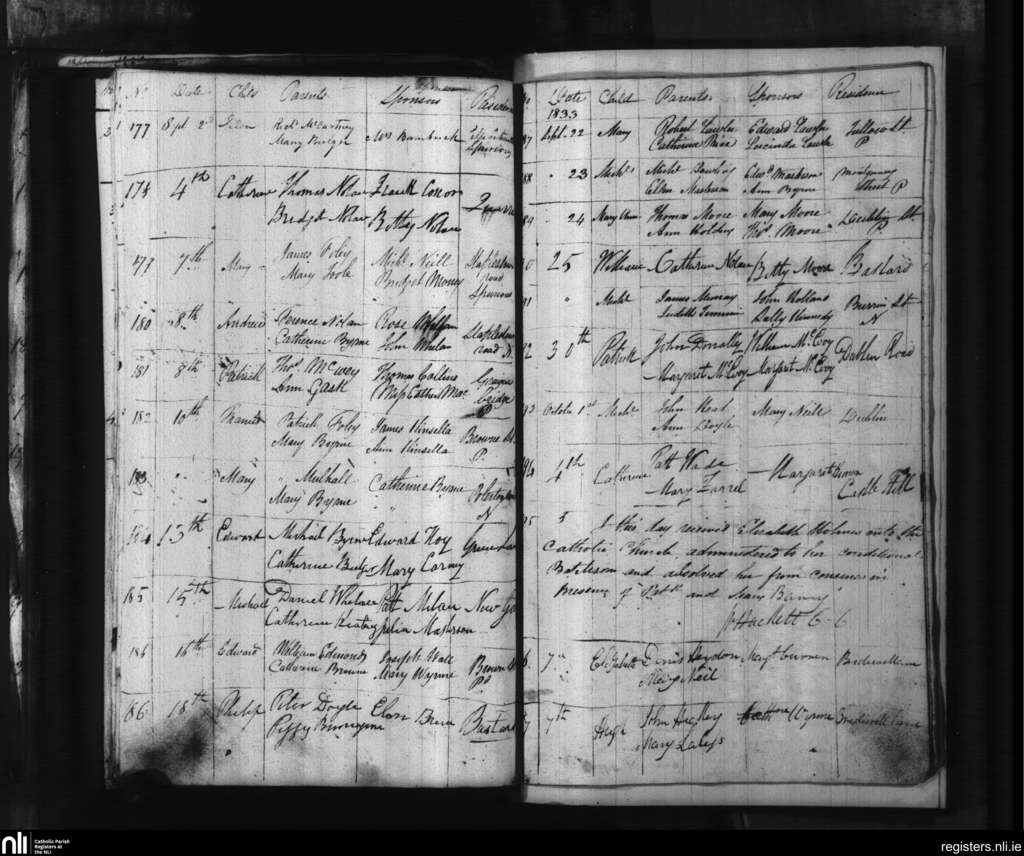 No Date Child Parents Sponsors Residence
177 Sept 2d Ellen Robt McCartney Mrs
Mary Bulger Spurious
178 4th Catherine Thomas Nolan Frank Conron
Bridget Nolan Betty Nolan
179 7th Mary James Foley Michl Neill Staplestown
Mary Toole Bridget Money road
Spurious
180 8th Andrew Terence Nolan Rose Staplestown
Catherine Byrne John Whelan road N.
181 8th Patrick Thos McEvey Thomas Collins Graigue
Ann Gash Miss Cathern bridge
P
182 10th Patrick Foley James Kinsella Browne St
Mary Byrne Ann Kinsella P.
183 " Mary " Mulhall Catherine Byrne
Mary Byrne N
184 13th Edward Michael Byrne Edward Hoy Green Lane
Catherine Bulger Mary Carney
185 15th Michael Daniel Whelan Patt Milan New
Catherine Keatney Julia Masterson
186 16th Edward William Edmonds Joseph Wall Brown St
Catherine Browne Mary Wynne P
86 18th Philip Peter Doyle Ellen Bastard
Peggy
Date Child Parents Sponsors Residence
1833
87 Sept. 22 Mary Robert Lawler Edward Lawler Tullow St
Catherine Price Lucinda Lawler P
88 " 23 Michl Michl Edwd Masterson Montgomery
Ellen Masterson Ann Byrne Street P
89 " 24 Mary Ann Thomas Moore Mary Moore Dublin St
Ann Holden Thos Moore P
90 25 William Catherine Nolan Betty Moore Bastard
91 " Michl James Murray John Holland Burrin St
Judith Sally Kennedy N
92 30th Patrick John Donally William McEvoy Dublin Road
Margaret McEvoy Margaret McEvoy
93 October 1st Michl John Neal Mary Neill Dublin
Ann Doyle
94 4th Catherine Patt Wade Margaret Castle Hill
Mary Farrel
95 5 I this day received Elizabeth Holmes into the
Catholic Church administered to her conditional
Baptism and absolved her from censures in
presence of Patk and Mary Banny
J Hackett C.C
6. 7th Elizabeth Denis Haydon Margt Curren Bridewell Lane
Mary Neil
7 7th Hugh John Hickey Wynne Bridewell Lane
Mary Lalys
nli Catholic Parish
Registers at
the NLI
registers.nli.ie